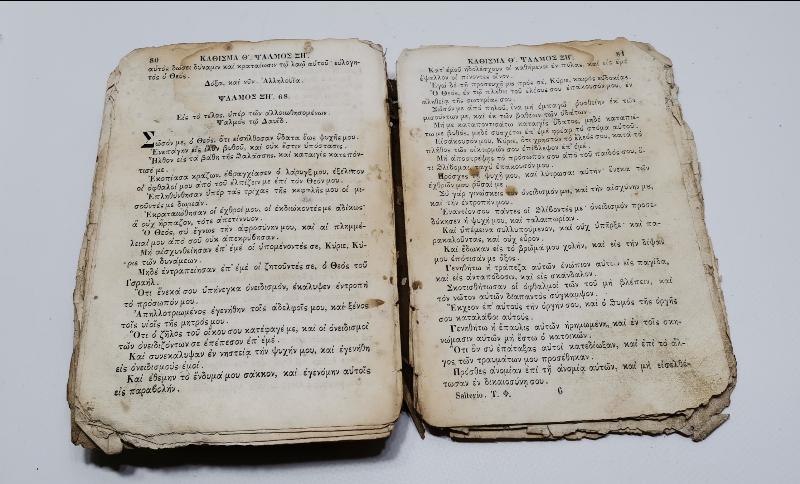 80 ΚΑΘΙΣΜΑ Θ΄. ΨΑΛΜΟΣ ΞΗ΄.
αυτὸς δώσει δύναμιν καὶ κραταίωσιν τῷ λαῷ αὐτοῦ· εὐλογη-
τὸς ὁ Θεός.
Δόξα, καὶ νῦν. Ἀλληλούϊα.
ΨΑΛΜΟΣ ΞΗ΄. 68.
Εἰς τὸ τέλος, ὑπὲρ τῶν ἀλλοιωθησομένων·
Ψαλμὸς τῷ Δαυΐδ.
Σῶσόν με, ὁ Θεός, ὅτι εἰσήλθοσαν ὕδατα ἕως ψυχῆς μου.
Ἐνεπάγην εἰς ἰλὺν βυθοῦ, καὶ οὐκ ἔστιν ὑπόστασις.
Ἦλθον εἰς τὰ βάθη τῆς θαλάσσης, καὶ καταιγὶς κατεπόν-
τισέ με.
Ἐκοπίασα κράζων, ἐβραγχίασεν ὁ λάρυγξ μου, ἐξέλιπον
οἱ ὀφθαλμοί μου ἀπὸ τοῦ ἐλπίζειν με ἐπὶ τὸν Θεόν μου.
Ἐπληθύνθησαν ὑπὲρ τὰς τρίχας τῆς κεφαλῆς μου οἱ μι-
σοῦντές με δωρεάν.
Ἐκραταιώθησαν οἱ ἐχθροί μου, οἱ ἐκδιώκοντές με ἀδίκως·
ἃ οὐχ ἥρπαζον, τότε ἀπετίννυον.
Ὁ Θεὸς, σὺ ἔγνως τὴν ἀφροσύνην μου, καὶ αἱ πλημμέ-
λειαί μου ἀπὸ σοῦ οὐκ ἀπεκρύβησαν.
Μὴ αἰσχυνθείησαν ἐπ' ἐμὲ οἱ ὑπομένοντές σε, Κύριε, Κύ-
ριε τῶν δυνάμεων.
Μηδὲ ἐντραπείησαν ἐπ' ἐμὲ οἱ ζητοῦντές σε, ὁ Θεὸς τοῦ
Ἰσραήλ.
Ὅτι ἕνεκά σου ὑπήνεγκα ὀνειδισμόν, ἐκάλυψεν ἐντροπὴ
τὸ πρόσωπόν μου.
Ἀπηλλοτριωμένος ἐγενήθην τοῖς ἀδελφοῖς μου, καὶ ξένος
τοῖς υἱοῖς τῆς μητρός μου.
Ὅτι ὁ ζῆλος τοῦ οἴκου σου κατέφαγέ με, καὶ οἱ ὀνειδισμοὶ
τῶν ὀνειδιζόντων σε ἐπέπεσον ἐπ' ἐμέ.
Καὶ συνεκάλυψαν ἐν νηστείᾳ τὴν ψυχήν μου, καὶ ἐγενήθη
εἰς ὀνειδισμοὺς ἐμοί.
Καὶ ἐθέμην τὸ ἔνδυμά μου σάκκον, καὶ ἐγενόμην αὐτοῖς
εἰς παραβολήν.
ΚΑΘΙΣΜΑ Θ΄. ΨΑΛΜΟΣ ΞΗ΄. 81
Κατ' ἐμοῦ ἠδολέσχουν οἱ καθήμενοι ἐν πύλαις, καὶ εἰς ἐμὲ
ἔψαλλον οἱ πίνοντες οἶνον.
Ἐγὼ δὲ τῇ προσευχῇ μου πρὸς σέ, Κύριε, καιρὸς εὐδοκίας.
Ὁ Θεός, ἐν τῷ πλήθει τοῦ ἐλέους σου ἐπάκουσόν μου, ἐν
ἀληθείᾳ τῆς σωτηρίας σου.
Σῶσόν με ἀπὸ πηλοῦ, ἵνα μὴ ἐμπαγῶ· ῥυσθείην ἐκ τῶν
μισούντων με, καὶ ἐκ τῶν βαθέων τῶν ὑδάτων.
Μή με καταποντισάτω καταιγὶς ὕδατος, μηδὲ καταπιέ-
τω με βυθός, μηδὲ συσχέτω ἐπ' ἐμὲ φρέαρ τὸ στόμα αὐτοῦ.
Εἰσάκουσόν μου, Κύριε, ὅτι χρηστὸν τὸ ἔλεός σου, κατὰ τὸ
πλῆθος τῶν οἰκτιρμῶν σου ἐπίβλεψον ἐπ' ἐμέ.
Μὴ ἀποστρέψῃς τὸ πρόσωπόν σου ἀπὸ τοῦ παιδός σου, ὅ-
τι θλίβομαι, ταχὺ ἐπάκουσόν μου.
Πρόσχες τῇ ψυχῇ μου, καὶ λύτρωσαι αὐτήν· ἕνεκα τῶν
ἐχθρῶν μου ῥῦσαί με.
Σὺ γὰρ γινώσκεις τὸν ὀνειδισμόν μου, καὶ τὴν αἰσχύνην μου,
καὶ τὴν ἐντροπήν μου.
Ἐναντίον σου πάντες οἱ θλίβοντές με· ὀνειδισμὸν προσε-
δόκησεν ἡ ψυχή μου, καὶ ταλαιπωρίαν.
Καὶ ὑπέμεινα συλλυπούμενον, καὶ οὐχ ὑπῆρξε· καὶ πα-
ρακαλοῦντας, καὶ οὐχ εὗρον.
Καὶ ἔδωκαν εἰς τὸ βρῶμά μου χολήν, καὶ εἰς τὴν δίψαν
μου ἐπότισάν με ὄξος.
Γενηθήτω ἡ τράπεζα αὐτῶν ἐνώπιον αὐτῶν εἰς παγίδα,
καὶ εἰς ἀνταπόδοσιν, καὶ εἰς σκάνδαλον.
Σκοτισθήτωσαν οἱ ὀφθαλμοὶ αὐτῶν τοῦ μὴ βλέπειν, καὶ
τὸν νῶτον αὐτῶν διαπαντὸς σύγκαμψον.
Ἔκχεον ἐπ' αὐτοὺς τὴν ὀργήν σου, καὶ ὁ θυμὸς τῆς ὀργῆς
σου καταλάβοι αὐτούς.
Γενηθήτω ἡ ἔπαυλις αὐτῶν ἠρημωμένη, καὶ ἐν τοῖς σκη-
νώμασιν αὐτῶν μὴ ἔστω ὁ κατοικῶν.
Ὅτι ὃν σὺ ἐπάταξας αὐτοὶ κατεδίωξαν, καὶ ἐπὶ τὸ ἄλ-
γος τῶν τραυμάτων μου προσέθηκαν.
Πρόσθες ἀνομίαν ἐπὶ τῇ ἀνομίᾳ αὐτῶν, καὶ μὴ εἰσελθέ-
τωσαν ἐν δικαιοσύνῃ σου.
Saltegio. Τ. Φ. 6